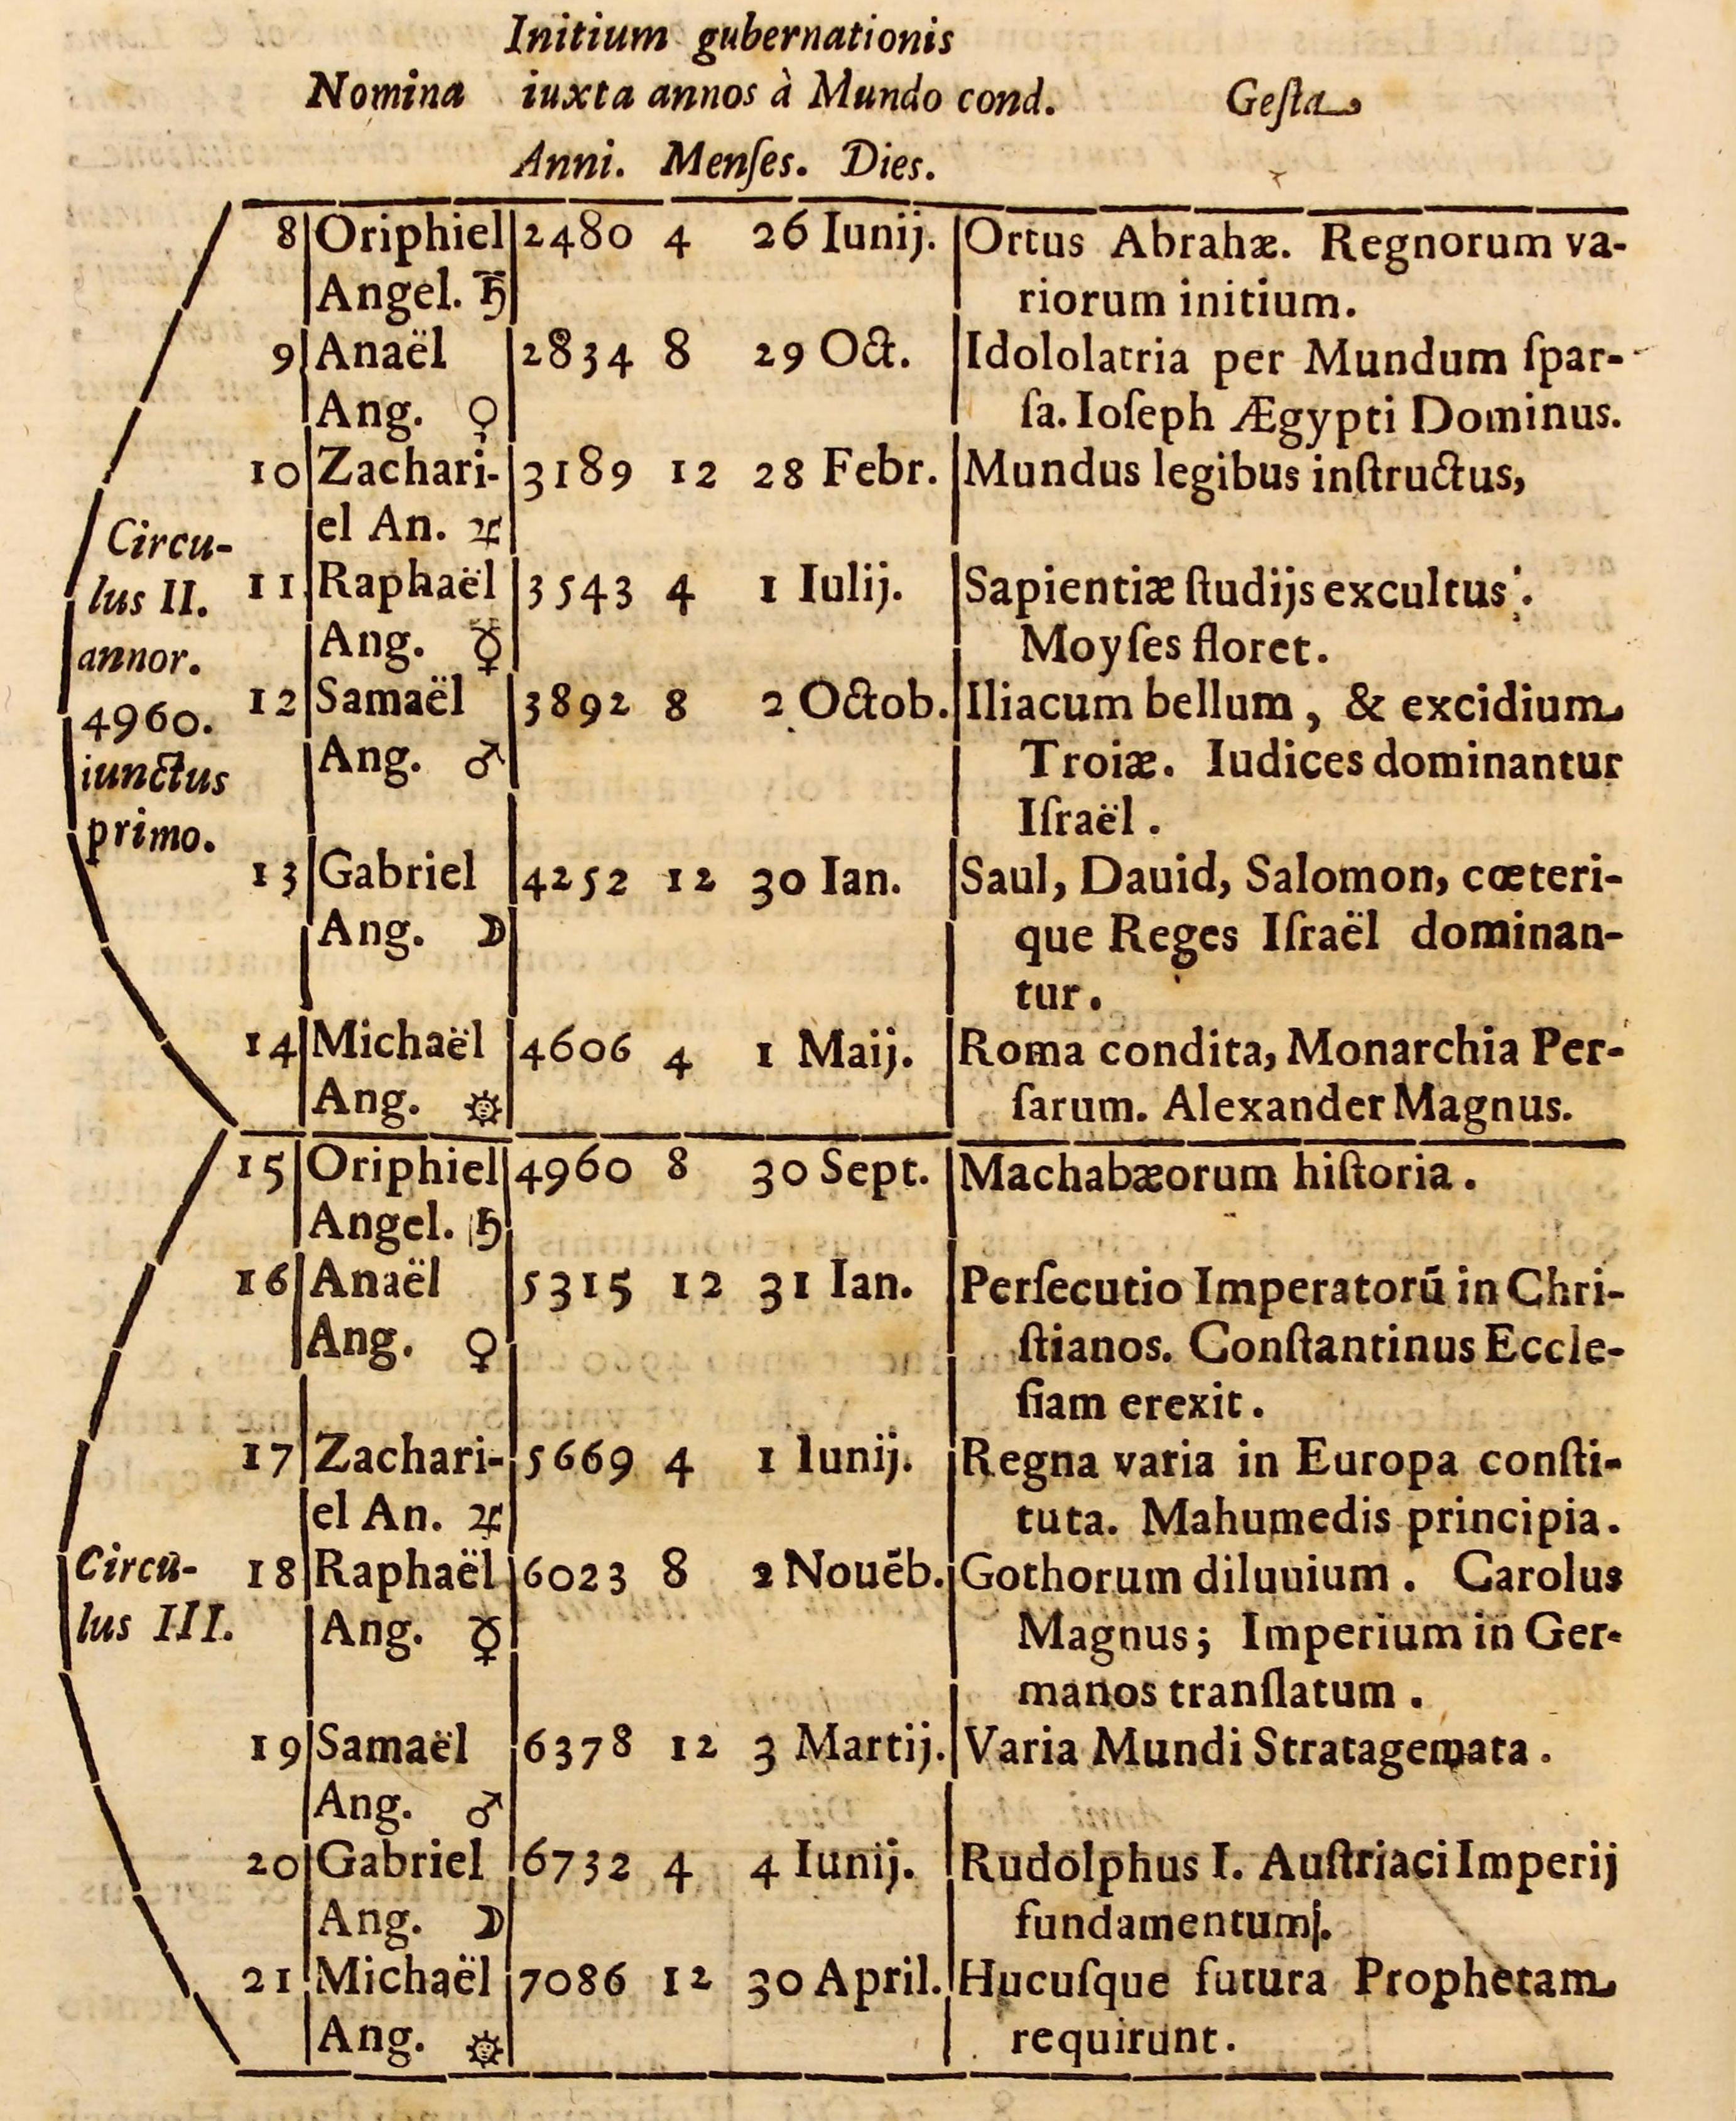 Initium gubernationis
Nomina iuxta annos à Mundo cond. Geſta
Anni. Menſes. Dies.
8 Oriphiel 2480 4 26 Iunij. Ortus Abrahæ. Regnorum va-
Angel. ♄ riorum initium.
9 Anaël 2834 8 29 Oct. Idololatria per Mundum ſpar-
Ang. ♀ ſa. Ioſeph Ægypti Dominus.
10 Zachari- 3189 12 28 Febr. Mundus legibus inſtructus,
el An. ♃
11 Raphaël 3543 4 1 Iulij. Sapientiæ ſtudijs excultus.
Ang. ☿ Moyſes floret.
12 Samaël 3892 8 2 Octob. Iliacum bellum, & excidium
Ang. ♂ Troiæ. Iudices dominantur
Iſraël.
13 Gabriel 4252 12 30 Ian. Saul, Dauid, Salomon, cœteri-
Ang. ☽ que Reges Iſraël dominan-
tur.
14 Michaël 4606 4 1 Maij. Roma condita, Monarchia Per-
Ang. ☼ ſarum. Alexander Magnus.
Circu-
lus II.
annor.
4960.
iunctus
primo.
15 Oriphiel 4960 8 30 Sept. Machabæorum hiſtoria.
Angel. ♄
16 Anaël 5315 12 31 Ian. Perſecutio Imperatorū in Chri-
Ang. ♀ ſtianos. Conſtantinus Eccle-
ſiam erexit.
17 Zachari- 5669 4 1 Iunij. Regna varia in Europa conſti-
el An. ♃ tuta. Mahumedis principia.
18 Raphaël 6023 8 2 Nouēb. Gothorum diluuium. Carolus
Ang. ☿ Magnus; Imperium in Ger-
manos tranſlatum.
19 Samaël 6378 12 3 Martij. Varia Mundi Stratagemata.
Ang. ♂
20 Gabriel 6732 4 4 Iunij. Rudolphus I. Auſtriaci Imperij
Ang. ☽ fundamentum.
21 Michaël 7086 12 30 April. Hucuſque futura Prophetam
Ang. ☼ requirunt.
Circū-
lus III.